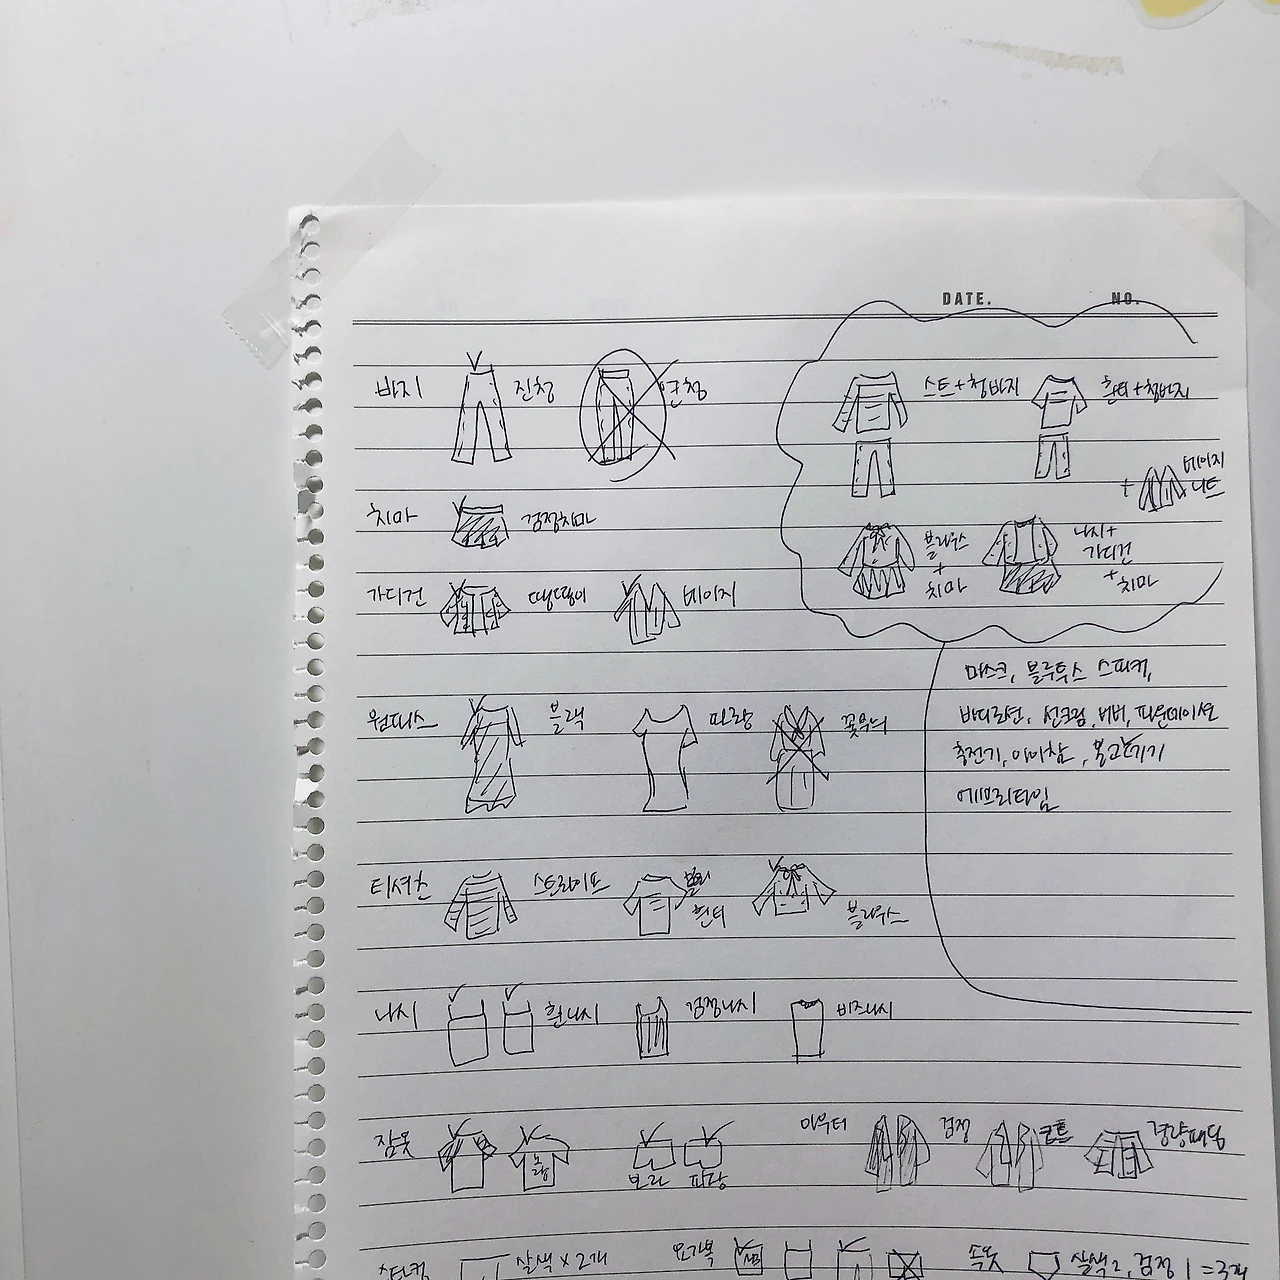 DATE. NO.
바지 진청
스트+청바지 흰티+청바지
베이지
니트
치마 검정치마
블라우스
+
치마
나시+
가디건
+
치마
가디건 땡땡이 베이지
마스크, 블루투스 스피커,
바디로션, 선크림, 비비, 파운데이션
충전기, 아이참, 불고기
에브리타임
원피스 블랙 파랑 꽃무늬
티셔츠 스트라이프 흰티 블라우스
나시 흰나시 검정나시 비즈나시
잠옷 노랑 보라 파랑
아우터 검정 코트 경량패딩
스타킹 살색 x 2개 요가복 속옷 살색 2, 검정 1 = 3개